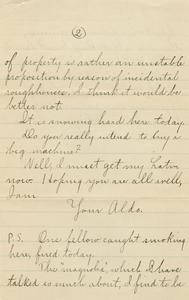 (2)
of property is rather an unstable
proposition by reason of incidental
roughhouses. I think it would be
better not.
It is snowing hard here today.
Do you really intend to buy a
big machine?
Well, I must get my Latin
now. Hoping you are all well,
I am
Your Aldo.
P.S. One fellow caught smoking
here, fired today.
The "magnolia", which I have
talked so much about, I find to be